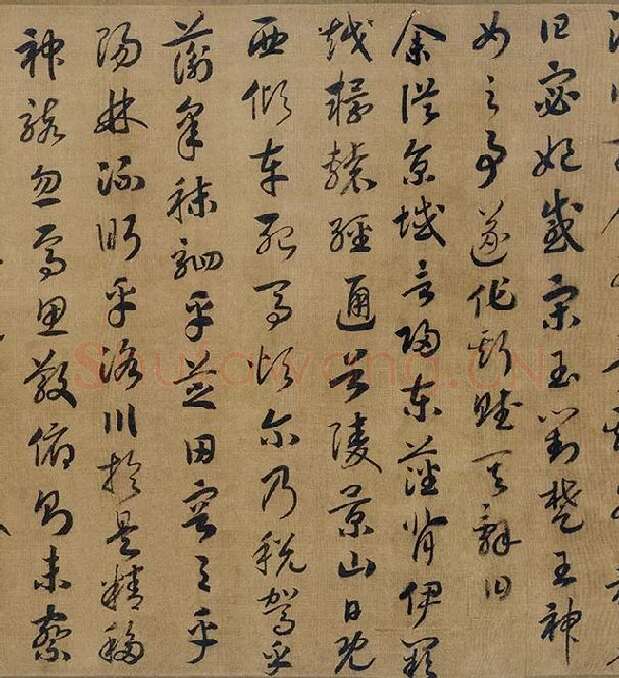 曰宓妃感宋玉對楚王神
女之事遂作斯賦其辭曰
余從京域言歸東藩背伊闕
越轘轅經通谷陵景山日既
西傾車殆馬煩尔乃税駕乎
蘅皋秣駟乎芝田容与乎
陽林流眄乎洛川於是精移
神駭忽焉思散俯則未察
Shufawang.CN